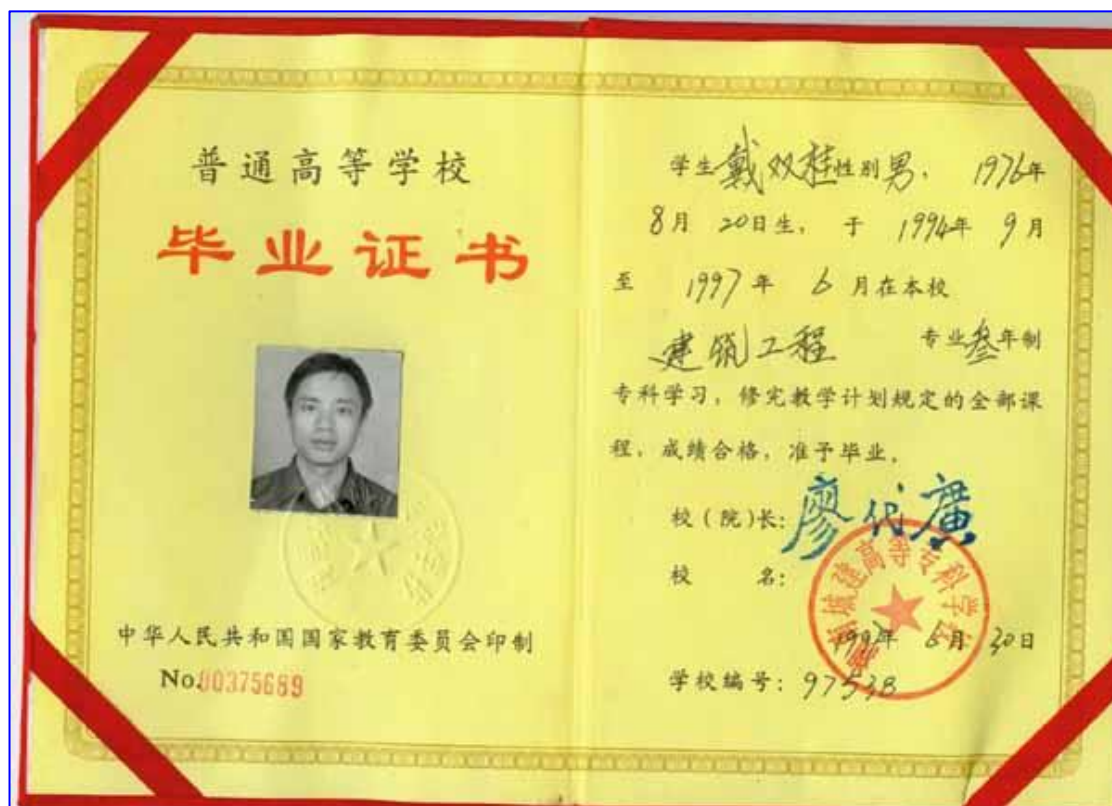 普通高等学校
毕业证书
中华人民共和国国家教育委员会印制
No.00375689
学生戴双桂性别男，1976年
8月20日生，于1994年9月
至1997年6月在本校
建筑工程 专业叁年制
专科学习，修完教学计划规定的全部课
程，成绩合格，准予毕业。
校(院)长：廖代广
校名：
湖南城建高等专科学校
1997年6月30日
学校编号：97538